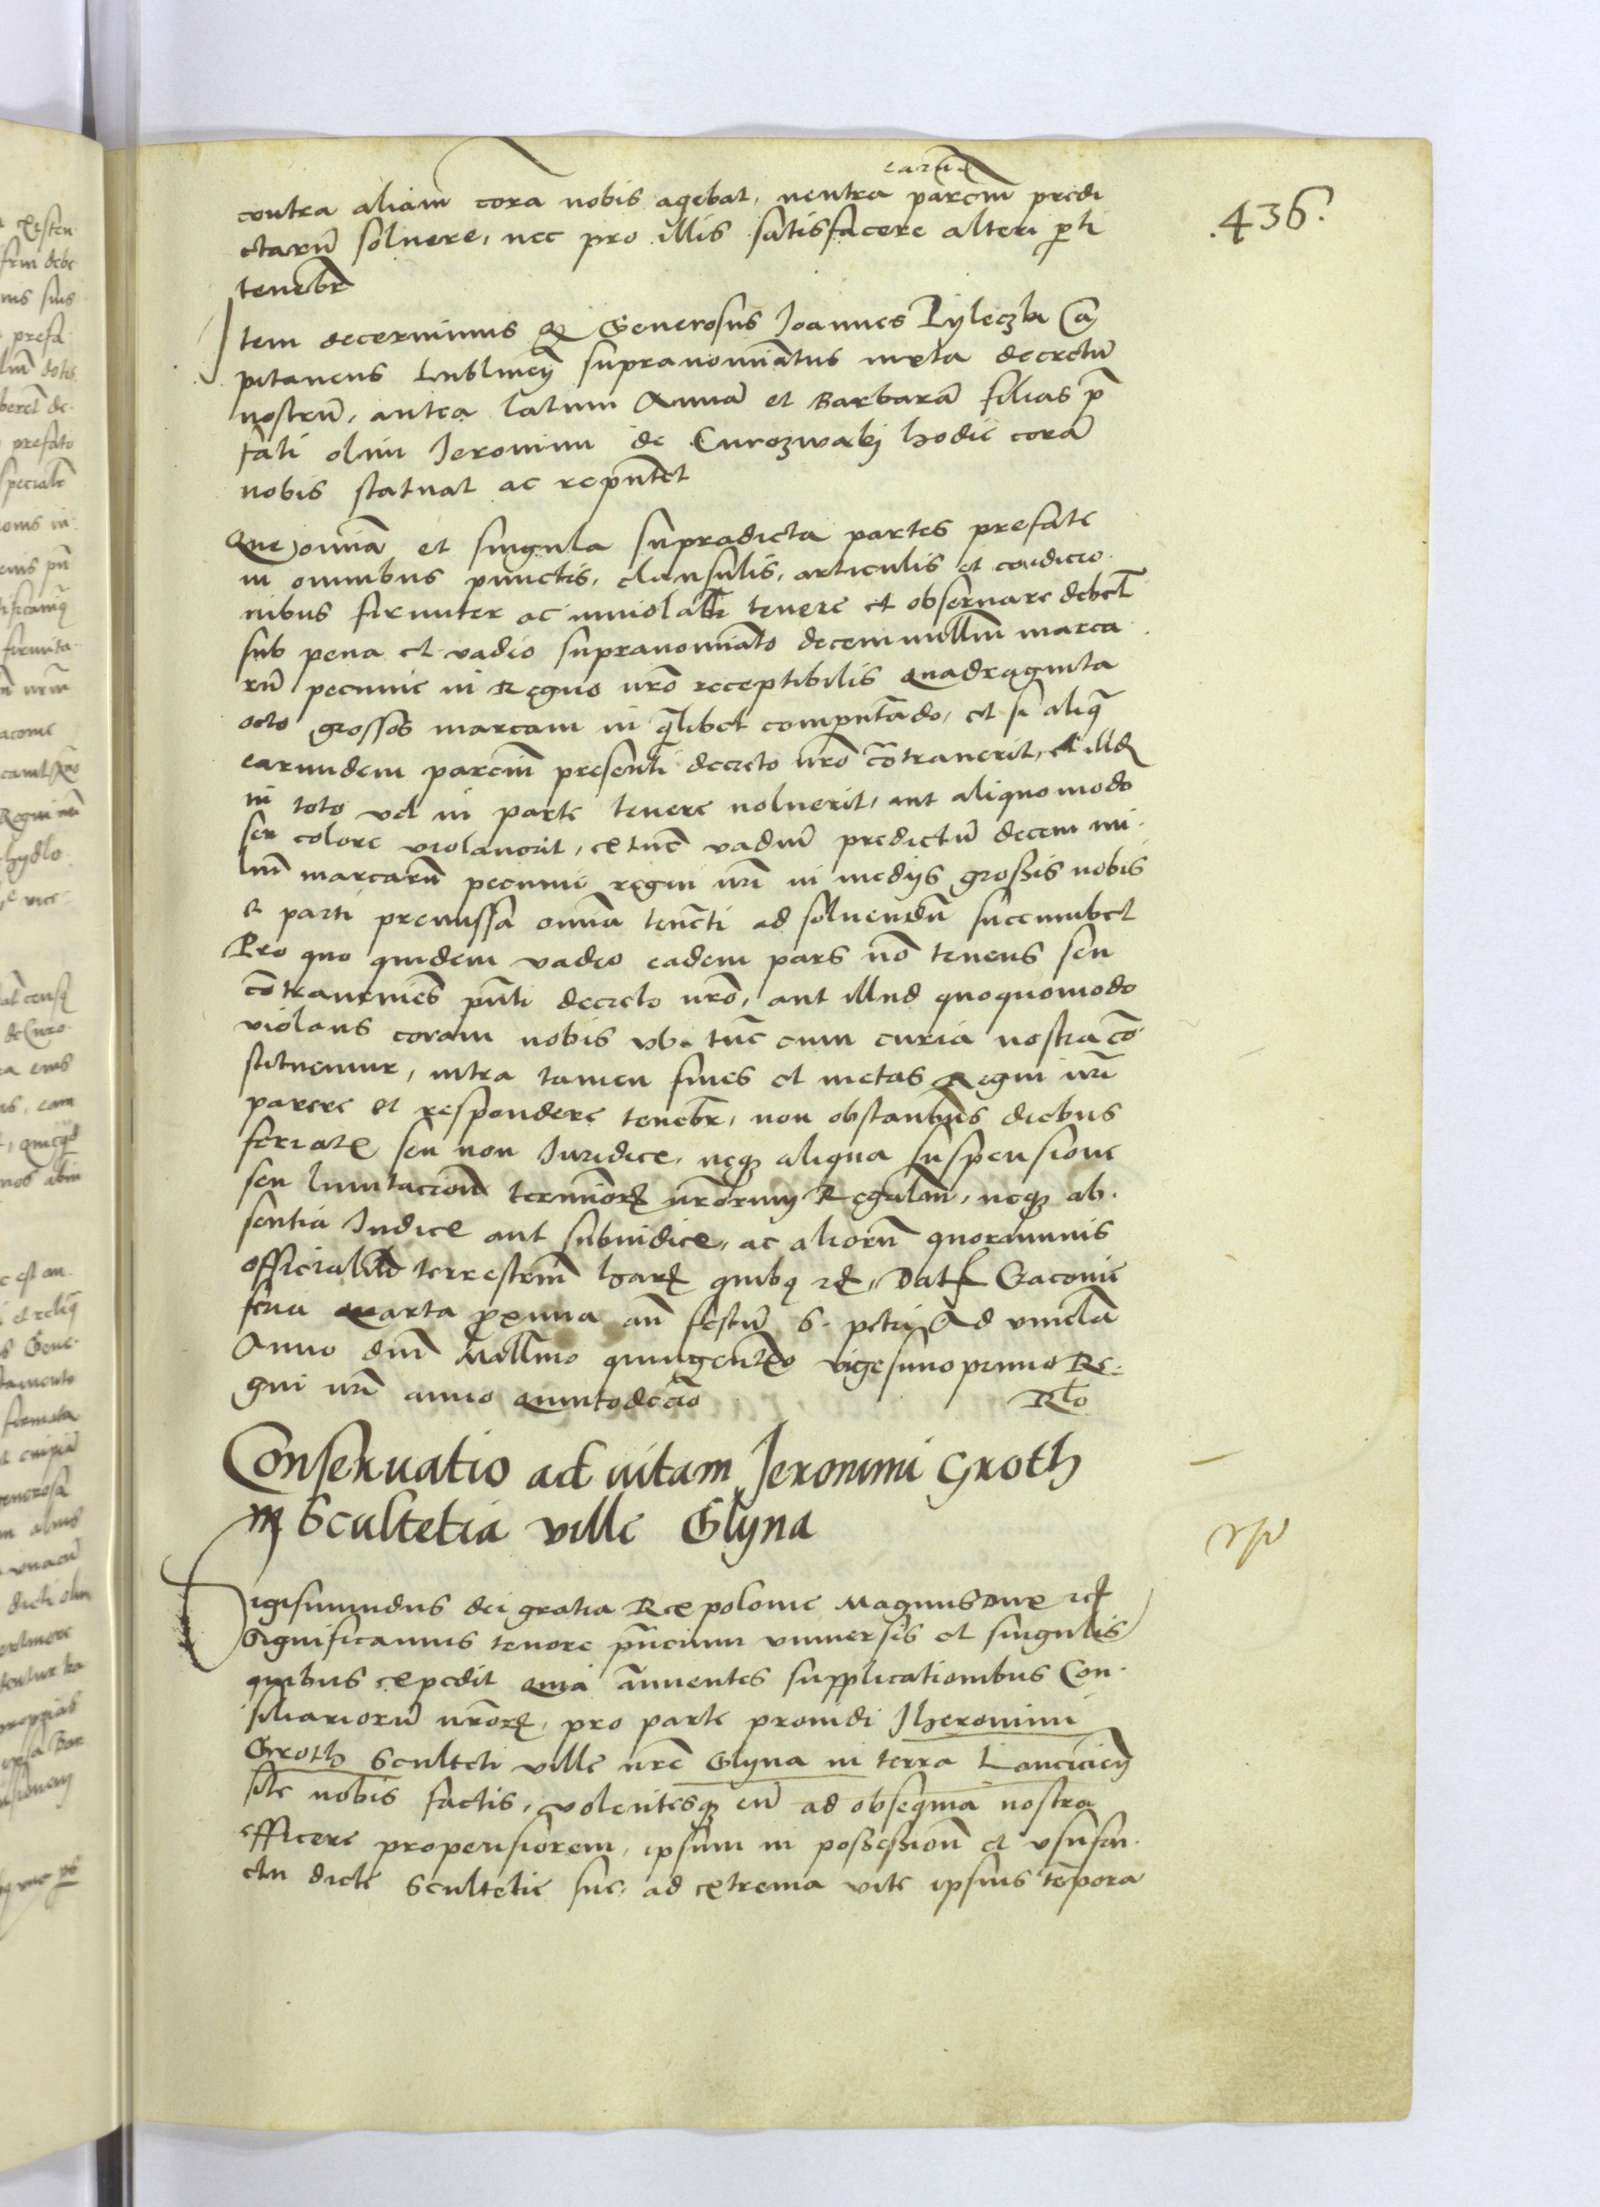 .436.
earund
contra aliam cora nobis agebat, neutra parcium predi
ctarum soluere, nec pro illis satisfacere alteri parti
tenebr
Item decernimus quod Generosus Joannes Pyleczki Ca
pitaneus Lublinen supranominatus iuxta decretum
nostrum, antea latum Annam et Barbaram filias pre
fati olim Jeronimi de Curozwaki hodie coram
nobis statuat ac representet
Que omnia et singula supradicta partes prefate
in omnibus punctis, clausulis, articulis et condicio
nibus firmiter ac inuiolabiliter tenere et obseruare debebt
sub pena et vadio supranominato decem millium marca
rum pecunie in Regno nro receptibilis Quadraginta
octo grossos marcam in qualibet computando, et si aliqua
earundem parcium presenti decreto nro contrauenerit, et illud
in toto vel in parte tenere noluerit, aut aliquo modo
seu colore violauerit, extunc vadium predictum decem mi
lium marcarum pecunie regni nri in medys grossis nobis
et parti premissa omnia tenenti ad soluendum succumbet
Pro quo quidem vadeo eadem pars non tenens seu
contraueniens pnti decreto nro, aut illud quoquomodo
violans coram nobis vbi tunc cum curia nostra con
stituemur, intra tamen fines et metas Regni nri
parere et respondere tenebr, non obstantibus diebus
feriatis seu non Iuridicis, neque aliqua suspensione
seu limitacione terminorum nrorum Regalium, neque ab
sentia Iudicis aut subiudicis, ac aliorum quorumuis
officialium terrestrium harum quibus rc, Datum Cracouie
feria quarta proxima ante festum S. petri Ad vincla
Anno dni Millimo quingentesimo vigesimoprimo Re
gni nri anno Quintodecimo
Rlo
Conseruatio ad uitam Jeronimi Groth
in Scultetia ville Glyna
Sigismundus dei gratia Rex polonie Magnus Dux rc
Significamus tenore pncium vniuersis et singulis
quibus expedit Quia annuentes supplicationibus Con
siliariorum nrorum, pro parte prouidi Jheronimi
Groth Sculteti ville nre Glyna in terra Lancicien
site nobis factis, volentesque eum ad obsequia nostra
efficere propensiorem, ipsum in possessione et vsufru
ctu dicte Scultetie sue, ad extrema vite ipsius tempora